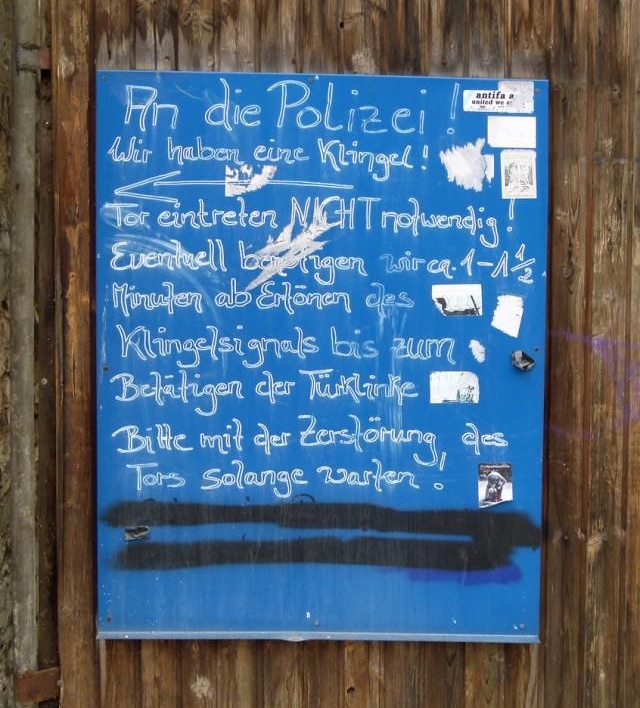 An die Polizei!
antifa a
united we s
Wir haben eine Klingel!
Tor eintreten NICHT notwendig!
Eventuell benötigen wir ca. 1-1 1/2
Minuten ab Ertönen des
Klingelsignals bis zum
Betätigen der Türklinke
Bitte mit der Zerstörung des
Tors solange warten!